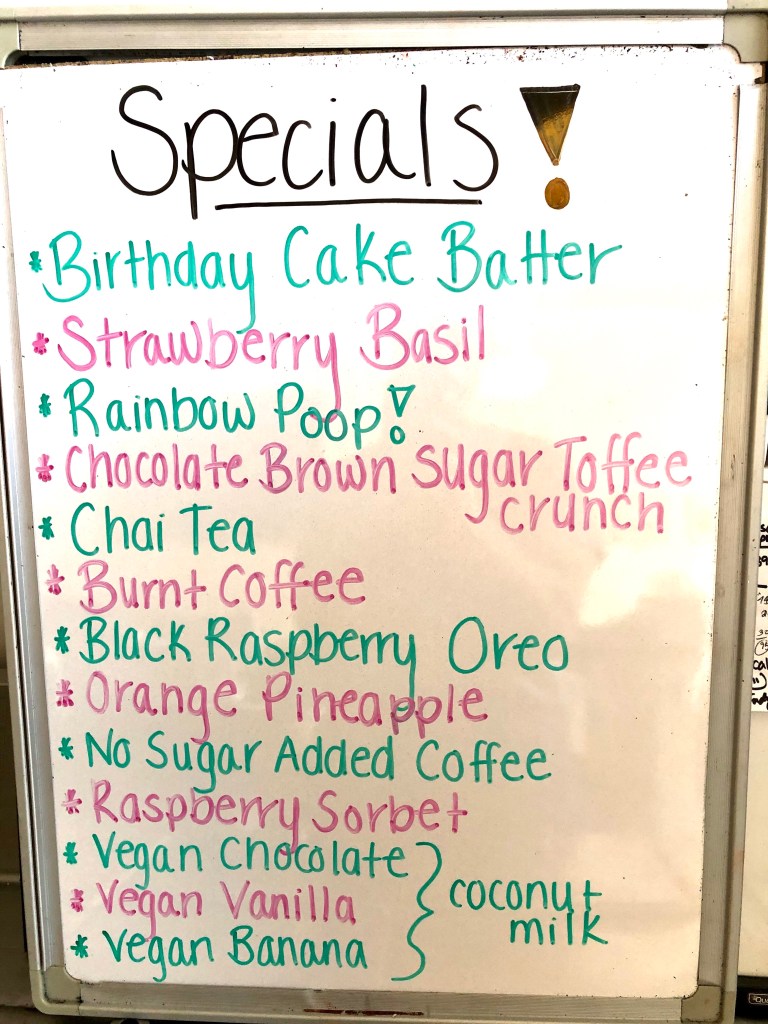 Specials!
* Birthday Cake Batter
* Strawberry Basil
* Rainbow Poop!
* Chocolate Brown Sugar Toffee
crunch
* Chai Tea
* Burnt Coffee
* Black Raspberry Oreo
* Orange Pineapple
* No Sugar Added Coffee
* Raspberry Sorbet
* Vegan Chocolate
* Vegan Vanilla
* Vegan Banana
coconut
milk